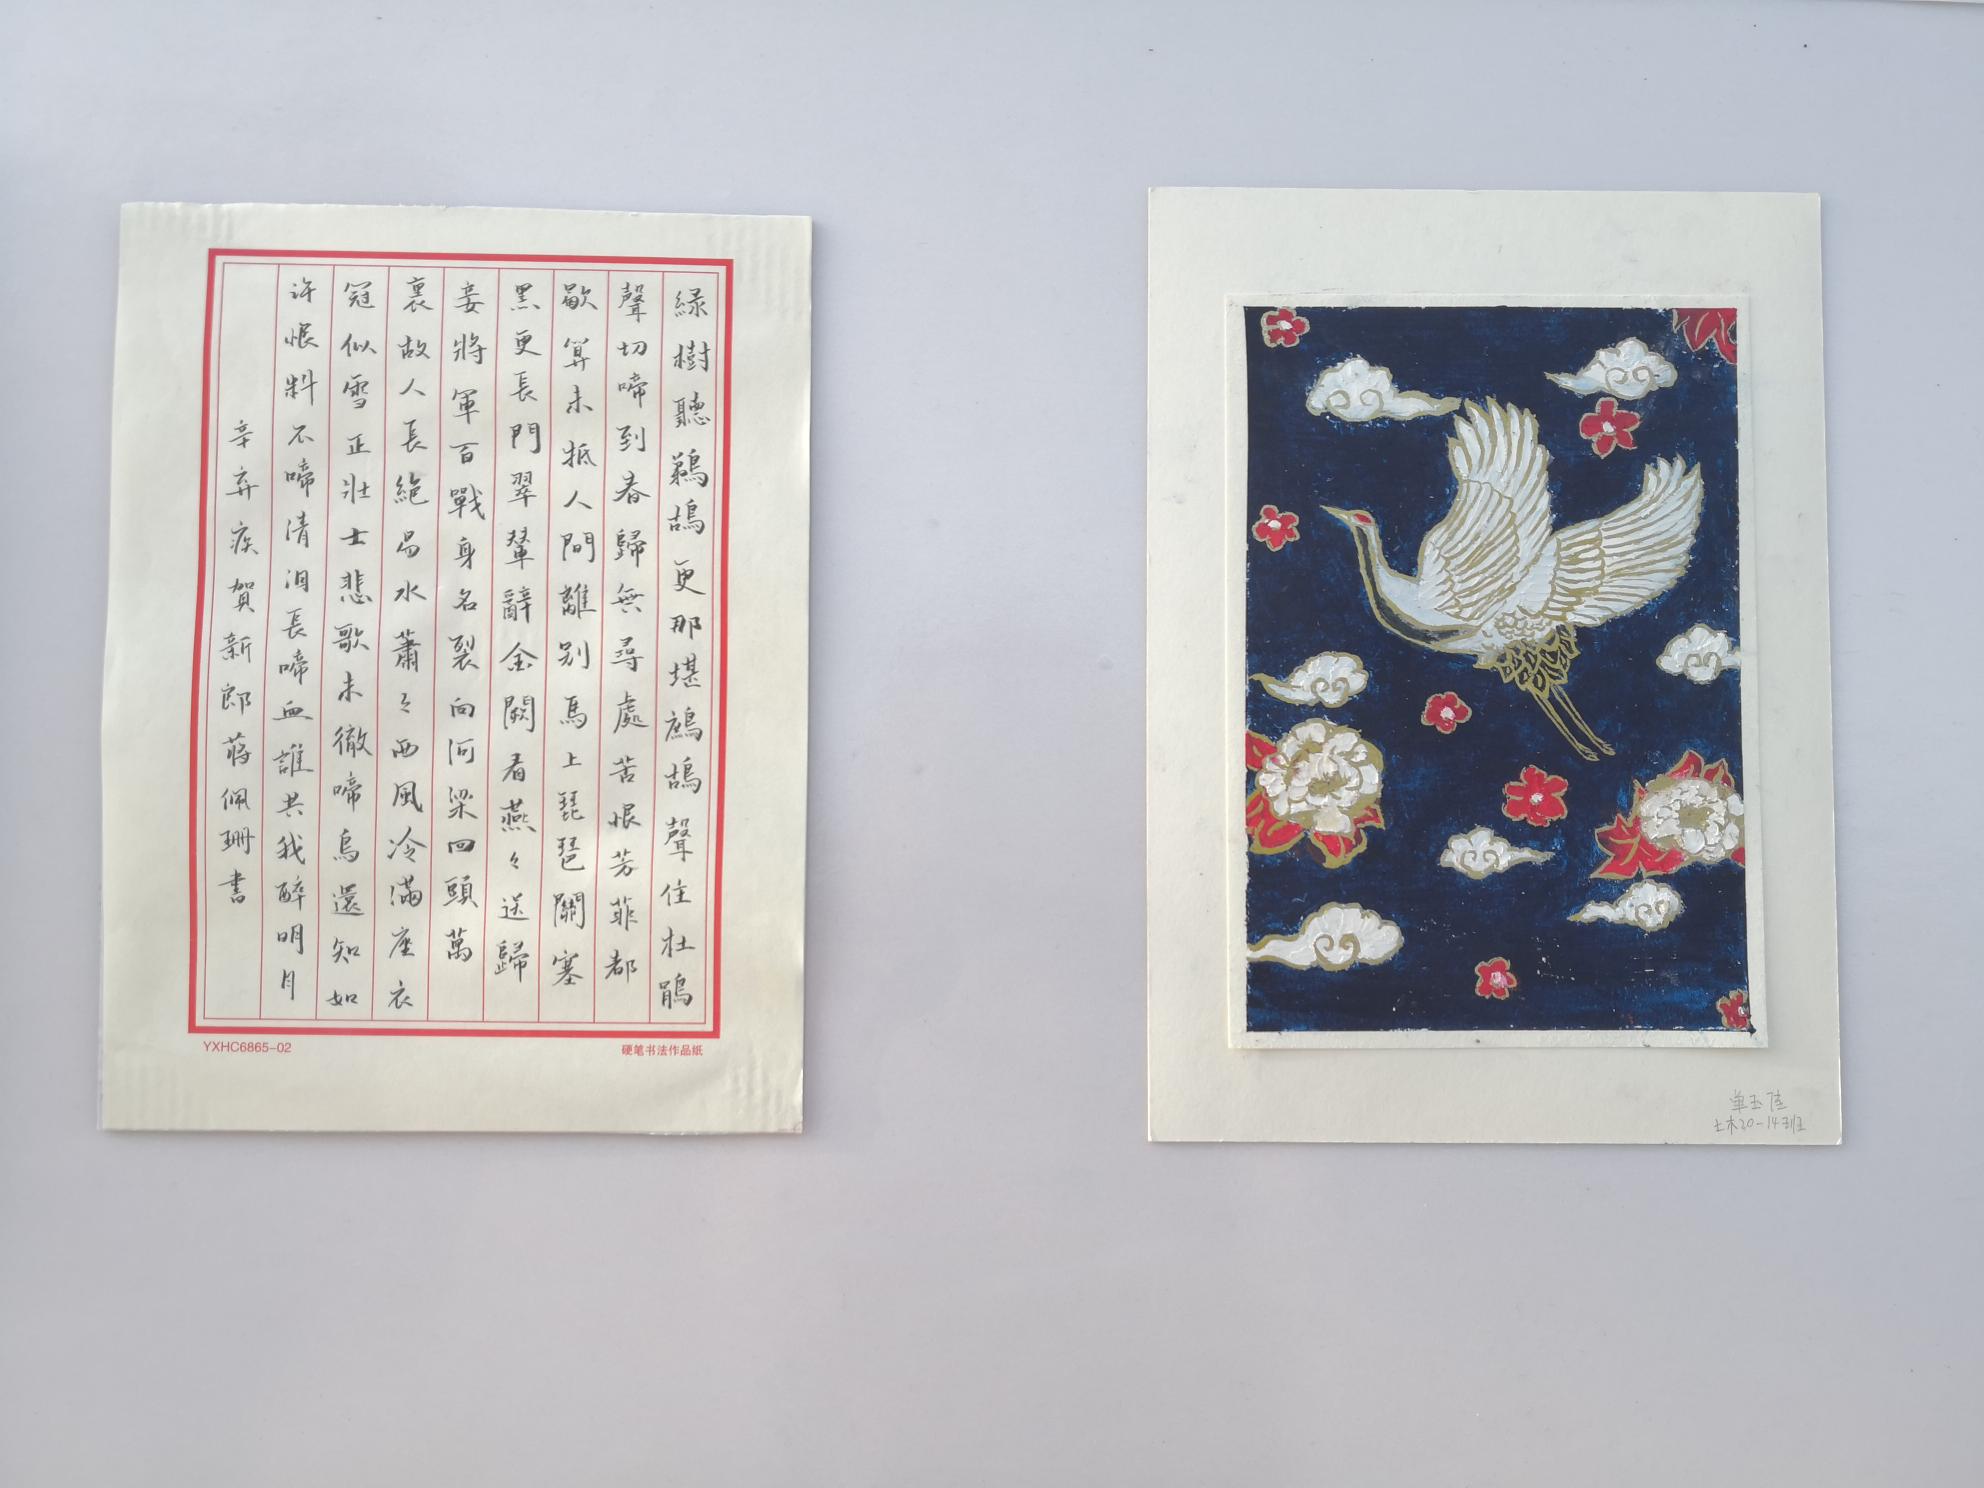 綠樹聽鵜鴣更那堪鷓鴣聲住杜鵑
聲切啼到春歸無尋處苦恨芳菲都
歇算未抵人間離別馬上琵琶關塞
黑更長門翠輦辭金闕看燕々送歸
妾將軍百戰身名裂向河梁回頭萬
裏故人長絕易水蕭々西風冷滿座衣
冠似雪正壯士悲歌未徹啼鳥還知如
許恨料不啼清淚長啼血誰共我醉明月
辛弃疾賀新郎蔣佩珊書
YXHC6865-02
硬笔书法作品纸
单玉
土木20-14班